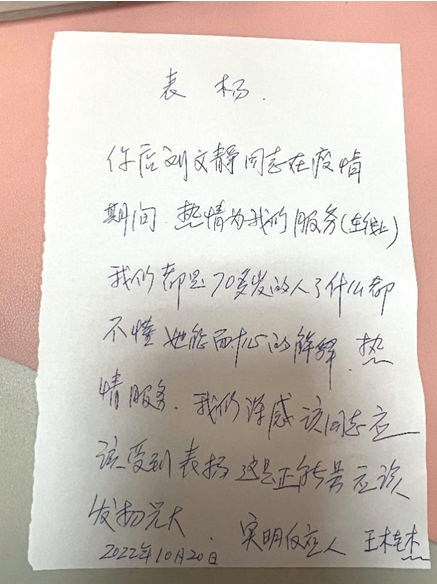 表 杨.
你店刘文静同志在疫情
期间.热情为我们服务(在线上)
我们都是70多岁的人了什么都
不懂她能耐心的解释.热
情服务.我们深感该同志应
该受到表扬这是正能量应该
发扬光大.
实明仅在人 王木
2022年10月20日